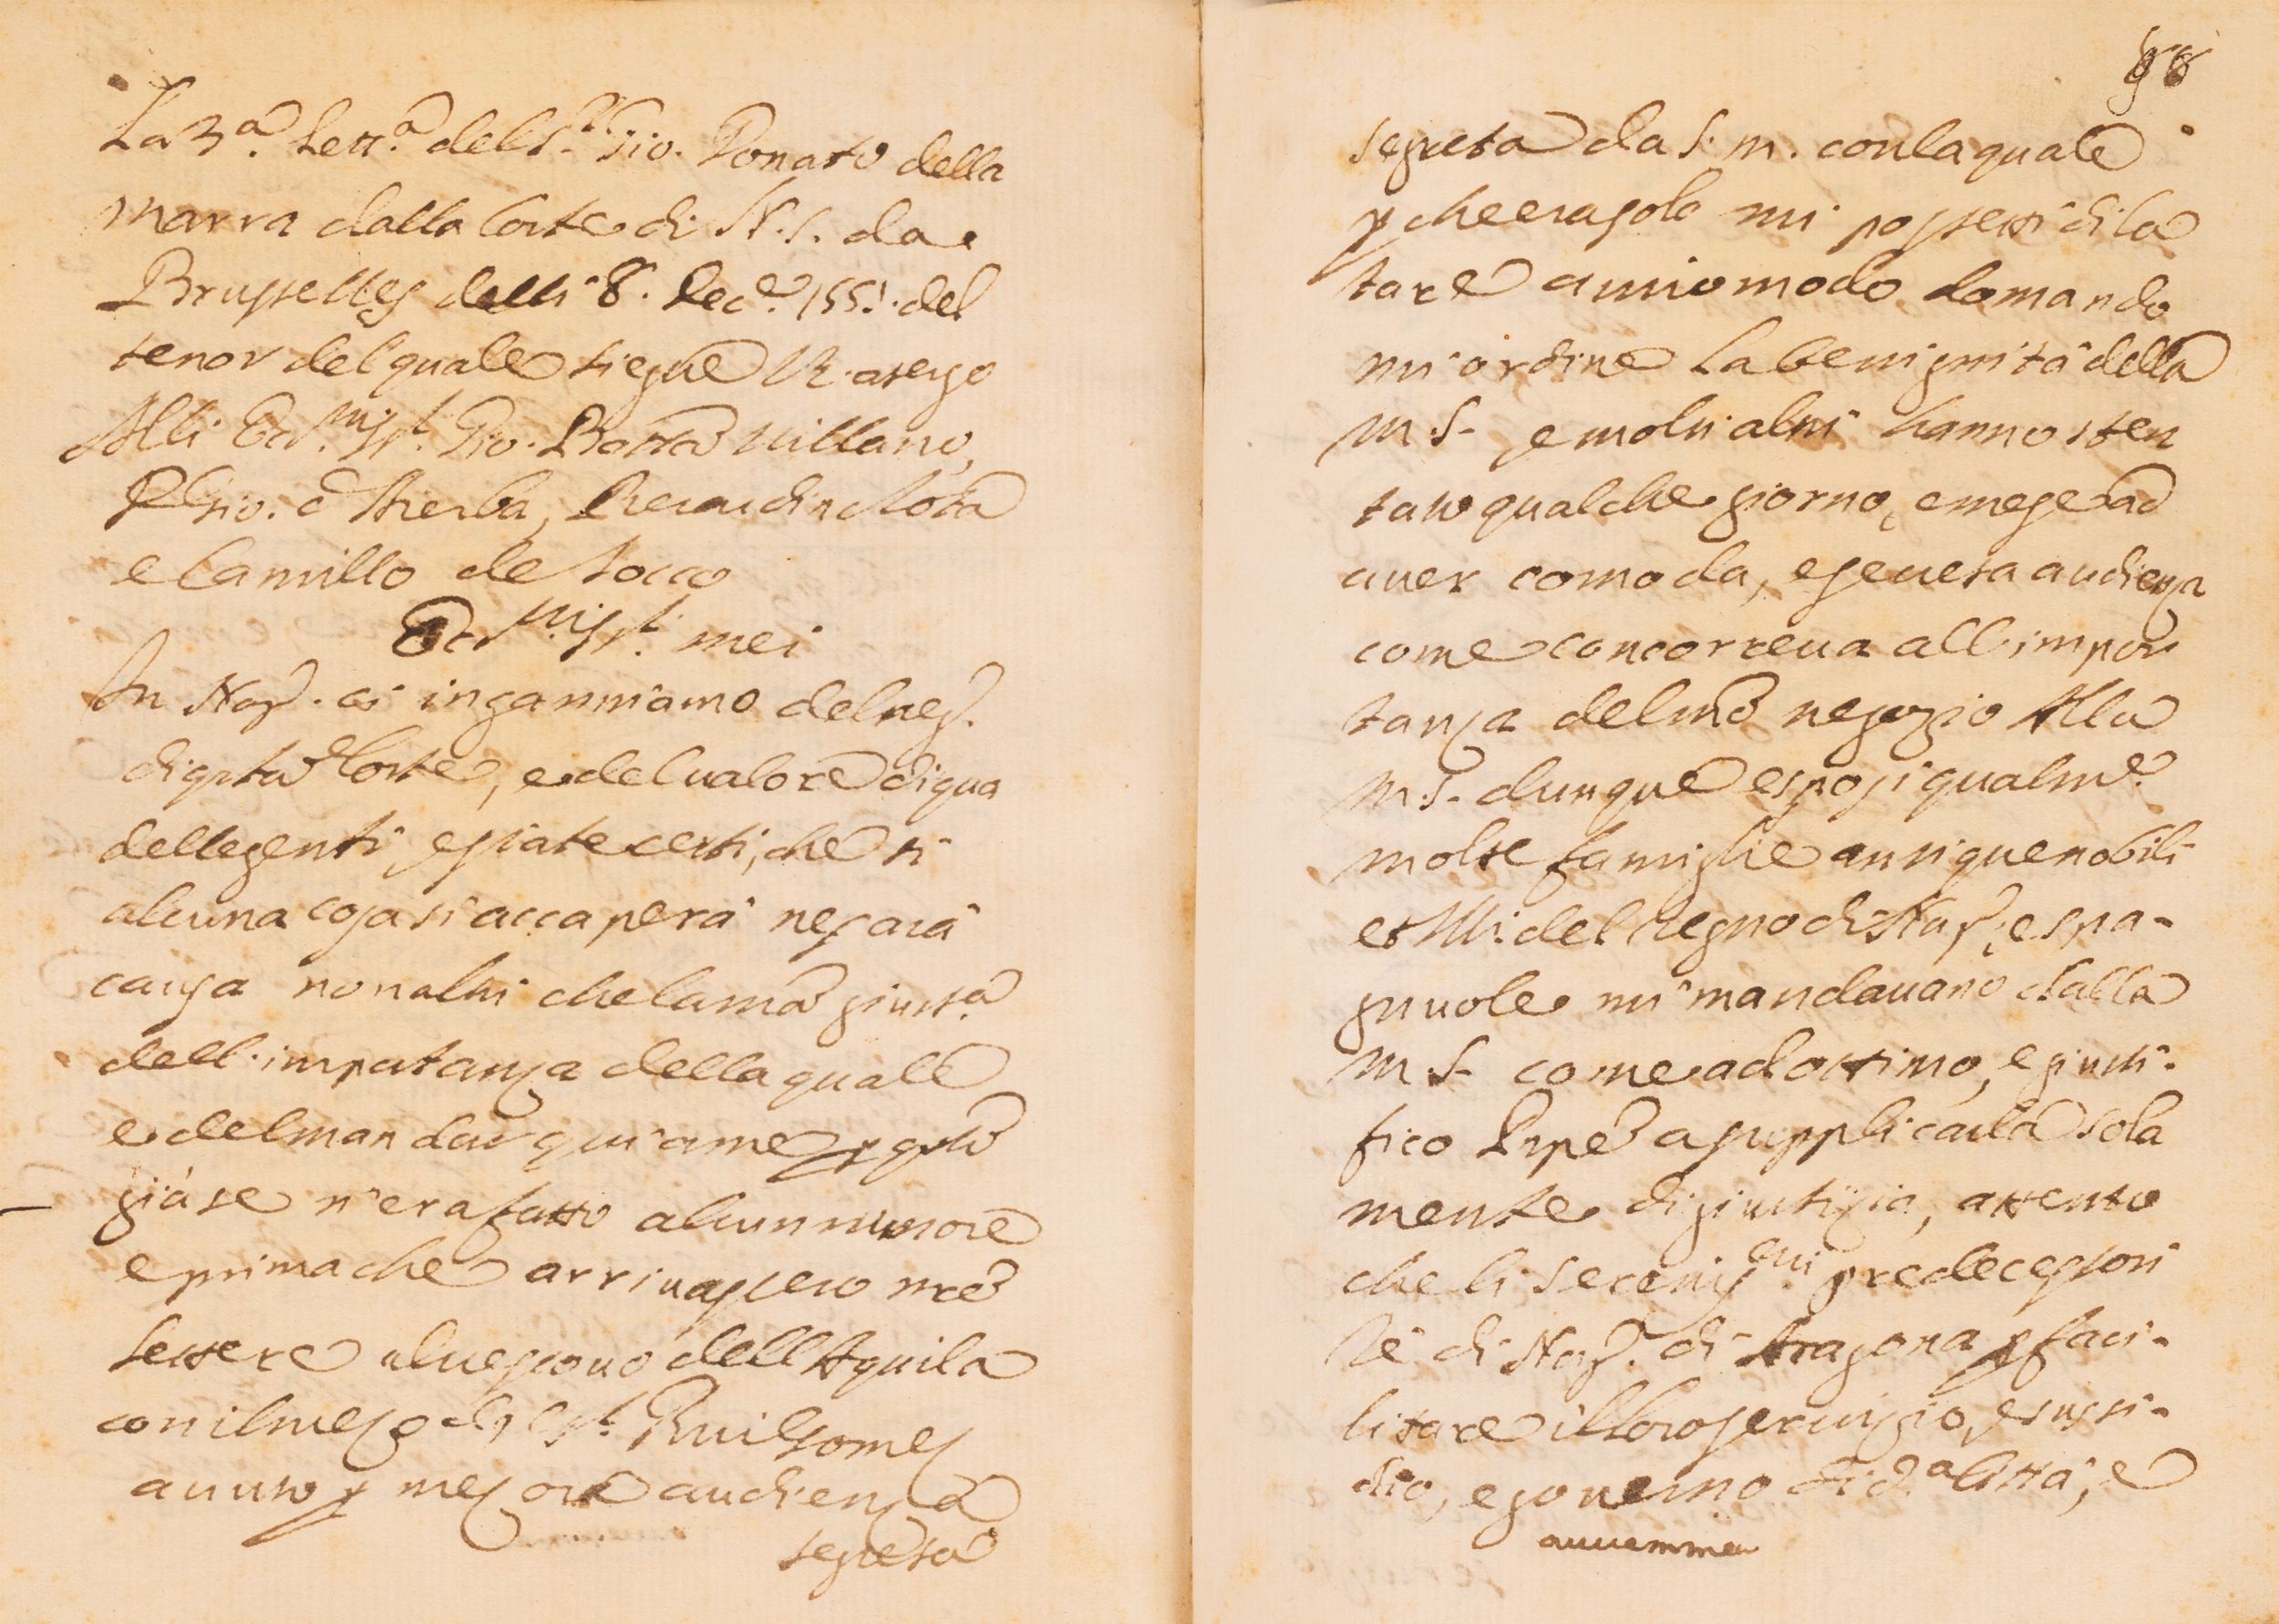 La 3.ª Lett.ª del S.r Gio. Donato della
marra dalla Corte di N.S. da
Brusselles delli 8. Dec.e 155!. del
tenor del quale siegue Vt. atergo
Alli Ecc.mi SS.ri Gio. Batta Villano,
Gio. d Herba, Berardin Rota
e Camillo de Tocco
Ecc.mi SS.ri mei
In Nap. ci inganniamo del neg.
di qsta Corte, e del valore di qua
delle genti, e siate certi, che si
alcuna cosa si accaperà ne sarà
causa non altri che la nrã giust.ª
dell'importanza della quale
e del mandar qui a me p qsto
già se n'era fatto alcun rumore
e prima che arrivassero nrẽ
lettere al vescovo dell'Aquila
con il mezo del S.r Ruilgomes
avuto p mez ora audienza
segreta
98
segreta da S. M. con la quale
p che era solo mi possetti dila
tare a mio modo domando
mi ordine la benignità della
M.S. e molti altri hanno sten
tato qualche giorno, e mese ad
aver comoda, e secreta audienza
come concorreva all'impor
tanza del nrõ negozio Alla
M.S. dunque esposi qualm.e
molte famiglie antique nobili
et Ill. del Regno di Nap., e spa-
gnuole mi mandavano dalla
M.S. come ad ottimo, e giusti-
fico Prpẽ a supplicarla sola
mente di giustizia, attento
che li Sereniss.mi predecessori
Rè di Nap. di Aragona p faci-
litare il loro servizio, e sussi-
dio, e governo di d.ª Città, e